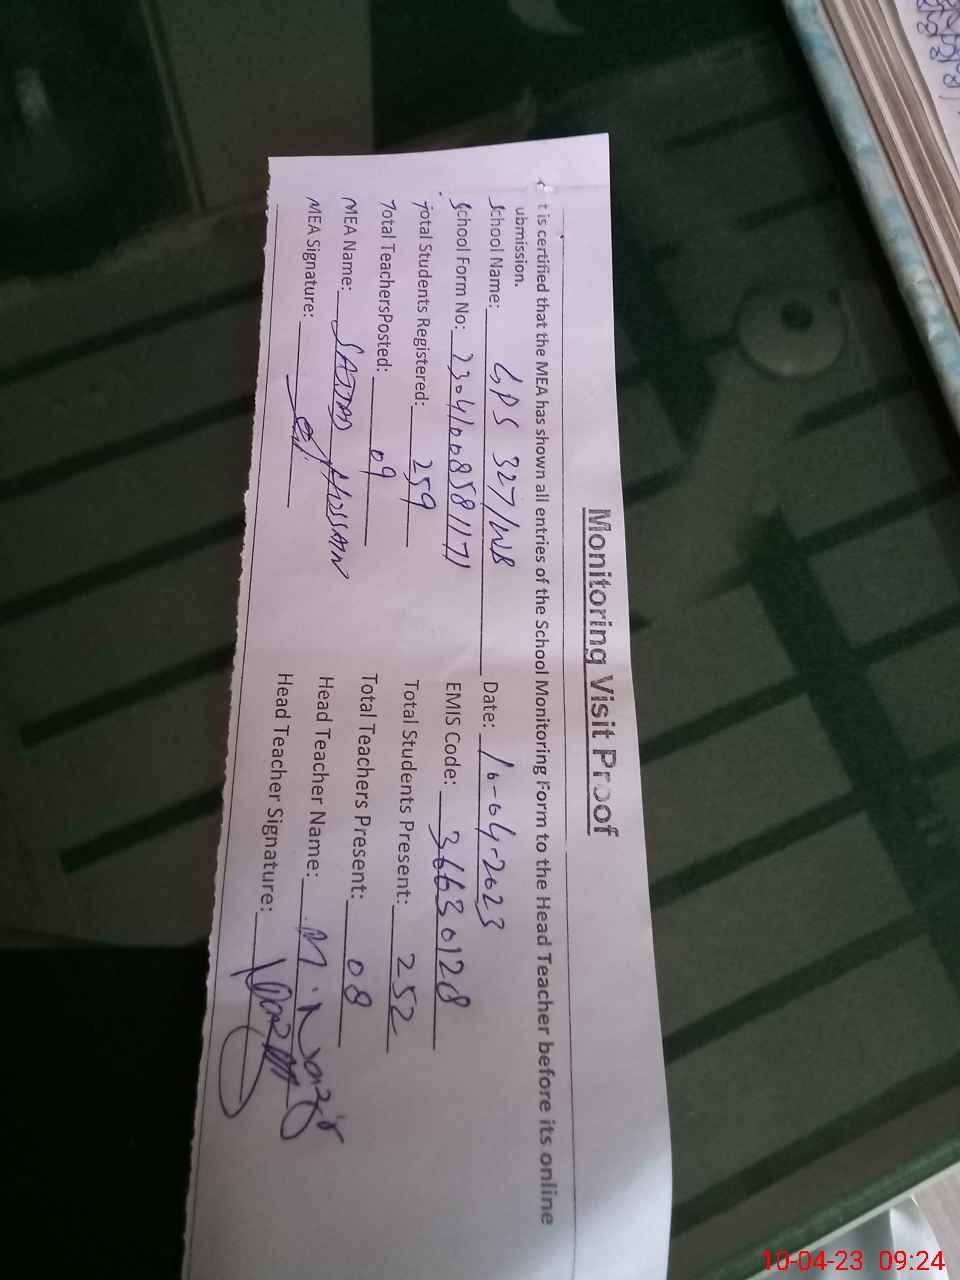 Monitoring Visit Proof
t is certified that the MEA has shown all entries of the School Monitoring Form to the Head Teacher before its online
ubmission.
School Name: GPS 327/WB Date: 10-04-2023
School Form No: 23041008581171 EMIS Code: 36630128
Total Students Registered: 259 Total Students Present: 252
Total TeachersPosted: 09 Total Teachers Present: 08
MEA Name: SAJJAD HUSSAIN Head Teacher Name: M. Nazir
MEA Signature: Head Teacher Signature:
10-04-23 09:24